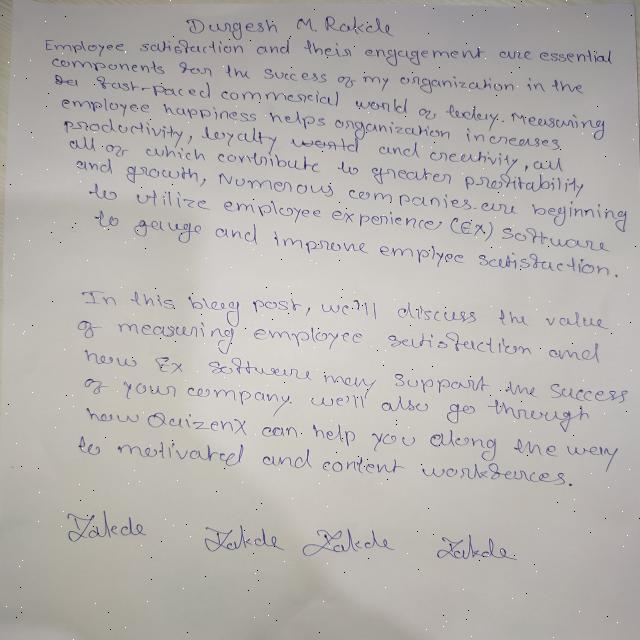 Durgesh M. Rakde
Employee satisfaction and their engagement are essential
components for the success of my organization in the
fast-paced commercial world of today. Measuring
employee happiness helps organization increases
productivity, loyalty and creativity, all
all of which contribute to greater profitability
and growth, Numerous companies are beginning
to utilize employee experience (EX) software
to gauge and improve emplyee satisfaction.
In this blog post, we'll discuss the value
of measuring employee satisfaction and
how EX software may support the success
of your company. we'll also go through
how QuizenX can help you along the way
to motivated and content workforces.
Rakde Rakde Rakde Rakde